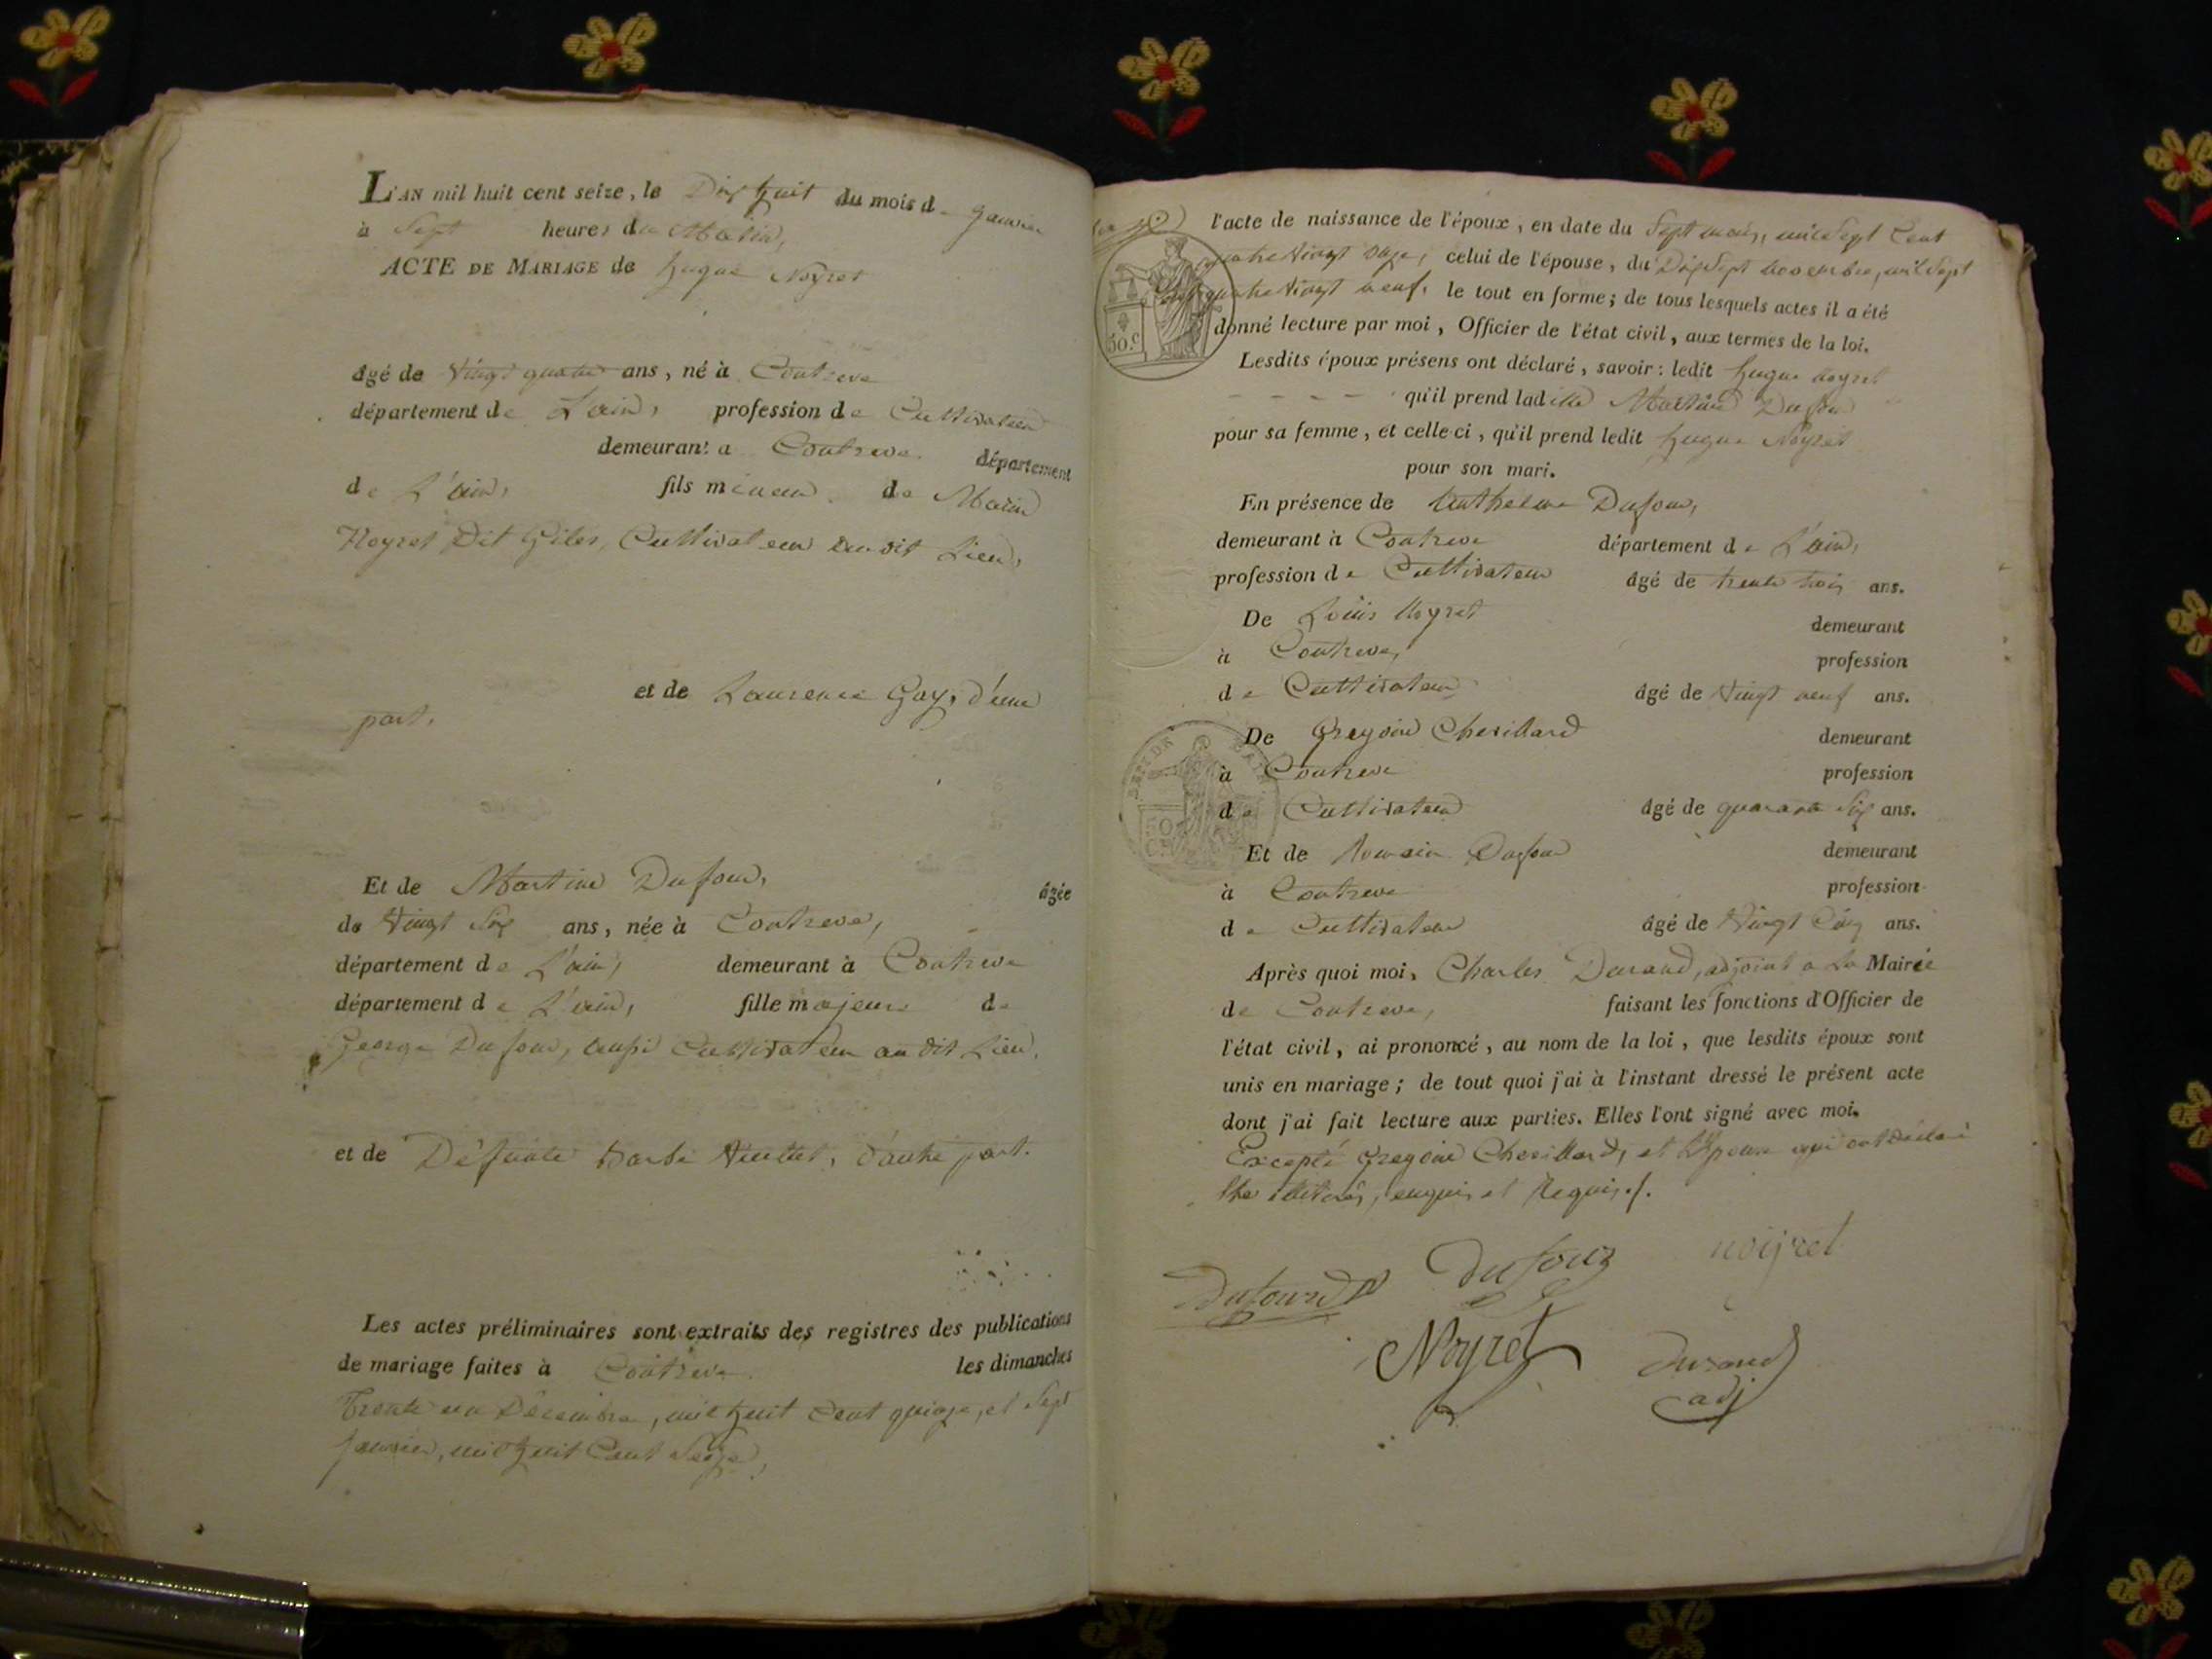 L'AN mil huit cent seize, le Dix huit du mois de Janvier
à Sept heures du Matin,
ACTE DE MARIAGE de hugue Noyret
âgé de Vingt quatre ans, né à Contreve
département de L'ain, profession de Cultivateur
demeurant a Contreve. département
de L'ain, fils mineur de Marin
Noyret Dit Giles, Cultivateur au dit Lieu,
et de Laurence Gay, d'une
part,
Et de Martine Dufour, âgée
de Vingt Six ans, née à Contreve,
département de L'ain, demeurant à Contreve
département de L'ain, fille majeure de
George Dufour, aussi Cultivateur au dit Lieu,
et de Défunte Barbe d'autre part.
Les actes préliminaires sont extraits des registres des publications
de mariage faites à Contreve les dimanches
Trente un Décembre, mil huit Cent quinze, et Sept
Janvier, mil huit Cent Seize,
l'acte de naissance de l'époux, en date du Sept mars, mil Sept Cent
quatre Vingt onze, celui de l'épouse, du Dix Sept novembre, mil Sept
Cent quatre Vingt neuf, le tout en forme; de tous lesquels actes il a été
donné lecture par moi, Officier de l'état civil, aux termes de la loi.
Lesdits époux présens ont déclaré, savoir: ledit hugue Noyret
qu'il prend ladite Martine Dufour
pour sa femme, et celle-ci, qu'il prend ledit hugue Noyret
pour son mari.
En présence de Anthelme Dufour,
demeurant à Contreve département de L'ain,
profession de Cultivateur âgé de trente trois ans.
De Louis Noyret demeurant
à Contreve, profession
de Cultivateur âgé de Vingt neuf ans.
De Gregoire Chevillard demeurant
à Contreve profession
de Cultivateur âgé de quarante Six ans.
Et de Romain Dufour demeurant
à Contreve profession
de Cultivateur âgé de Vingt Cinq ans.
Après quoi moi, Charles Durand, adjoint a La Mairie
de Contreve, faisant les fonctions d'Officier de
l'état civil, ai prononcé, au nom de la loi, que lesdits époux sont
unis en mariage; de tout quoi j'ai à l'instant dressé le présent acte
dont j'ai fait lecture aux parties. Elles l'ont signé avec moi.
Excepté Gregoire Chevillard, et L'Epouse qui ont déclaré
être illitérés, enquis et Requis./.
Dufour noijret
Dufourd
Noyret Durand
adj
50.C